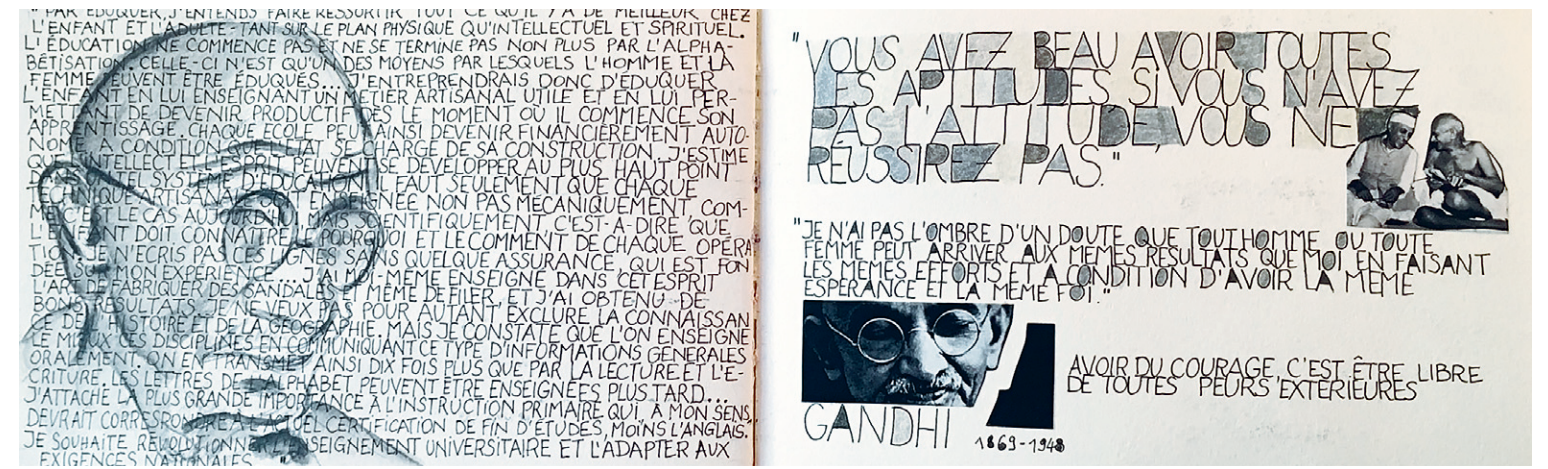 " PAR ÉDUQUER, J'ENTENDS FAIRE RESSORTIR TOUT CE QU'IL Y A DE MEILLEUR CHEZ
L'ENFANT ET L'ADULTE - TANT SUR LE PLAN PHYSIQUE QU'INTELLECTUEL ET SPIRITUEL.
L'ÉDUCATION NE COMMENCE PAS ET NE SE TERMINE PAS NON PLUS PAR L'ALPHA-
BÉTISATION. CELLE-CI N'EST QU'UN DES MOYENS PAR LESQUELS L'HOMME ET LA
FEMME PEUVENT ÊTRE ÉDUQUÉS... J'ENTREPRENDRAIS DONC D'ÉDUQUER
L'ENFANT EN LUI ENSEIGNANT UN MÉTIER ARTISANAL UTILE ET EN LUI PER-
METTANT DE DEVENIR PRODUCTIF DÈS LE MOMENT OÙ IL COMMENCE SON
APPRENTISSAGE. CHAQUE ÉCOLE PEUT AINSI DEVENIR FINANCIÈREMENT AUTO-
NOME, À CONDITION QUE L'ÉTAT SE CHARGE DE SA CONSTRUCTION. J'ESTIME
QUE L'INTELLECT ET L'ESPRIT PEUVENT SE DÉVELOPPER AU PLUS HAUT POINT
DANS UN TEL SYSTÈME D'ÉDUCATION. IL FAUT SEULEMENT QUE CHAQUE
TECHNIQUE ARTISANALE SOIT ENSEIGNÉE NON PAS MÉCANIQUEMENT COM-
ME C'EST LE CAS AUJOURD'HUI MAIS SCIENTIFIQUEMENT, C'EST-À-DIRE QUE
L'ENFANT DOIT CONNAÎTRE LE POURQUOI ET LE COMMENT DE CHAQUE OPÉRA
TION. JE N'ÉCRIS PAS CES LIGNES SANS QUELQUE ASSURANCE, QUI EST FON
DÉE SUR MON EXPÉRIENCE. J'AI MOI-MÊME ENSEIGNÉ DANS CET ESPRIT
L'ART DE FABRIQUER DES SANDALES ET MÊME DE FILER, ET J'AI OBTENU DE
BONS RÉSULTATS. JE NE VEUX PAS POUR AUTANT EXCLURE LA CONNAISSAN
CE DE L'HISTOIRE ET DE LA GÉOGRAPHIE, MAIS JE CONSTATE QUE L'ON ENSEIGNE
LE MIEUX CES DISCIPLINES EN COMMUNIQUANT CE TYPE D'INFORMATIONS GÉNÉRALES
ORALEMENT. ON EN TRANSMET AINSI DIX FOIS PLUS QUE PAR LA LECTURE ET L'É-
CRITURE. LES LETTRES DE L'ALPHABET PEUVENT ÊTRE ENSEIGNÉES PLUS TARD...
J'ATTACHE LA PLUS GRANDE IMPORTANCE À L'INSTRUCTION PRIMAIRE QUI, À MON SENS,
DEVRAIT CORRESPONDRE À L'ACTUEL CERTIFICATION DE FIN D'ÉTUDES, MOINS L'ANGLAIS.
JE SOUHAITE RÉVOLUTIONNER L'ENSEIGNEMENT UNIVERSITAIRE ET L'ADAPTER AUX
EXIGENCES NATIONALES... "
"VOUS AVEZ BEAU AVOIR TOUTES
LES APTITUDES SI VOUS N'AVEZ
PAS L'ATTITUDE, VOUS NE
RÉUSSIREZ PAS."
"JE N'AI PAS L'OMBRE D'UN DOUTE QUE TOUT HOMME OU TOUTE
FEMME PEUT ARRIVER AUX MEMES RESULTATS QUE MOI EN FAISANT
LES MEMES EFFORTS ET A CONDITION D'AVOIR LA MEME
ESPERANCE ET LA MEME FOI."
AVOIR DU COURAGE, C'EST ÊTRE LIBRE
DE TOUTES PEURS EXTÉRIEURES
GANDHI 1869-1948